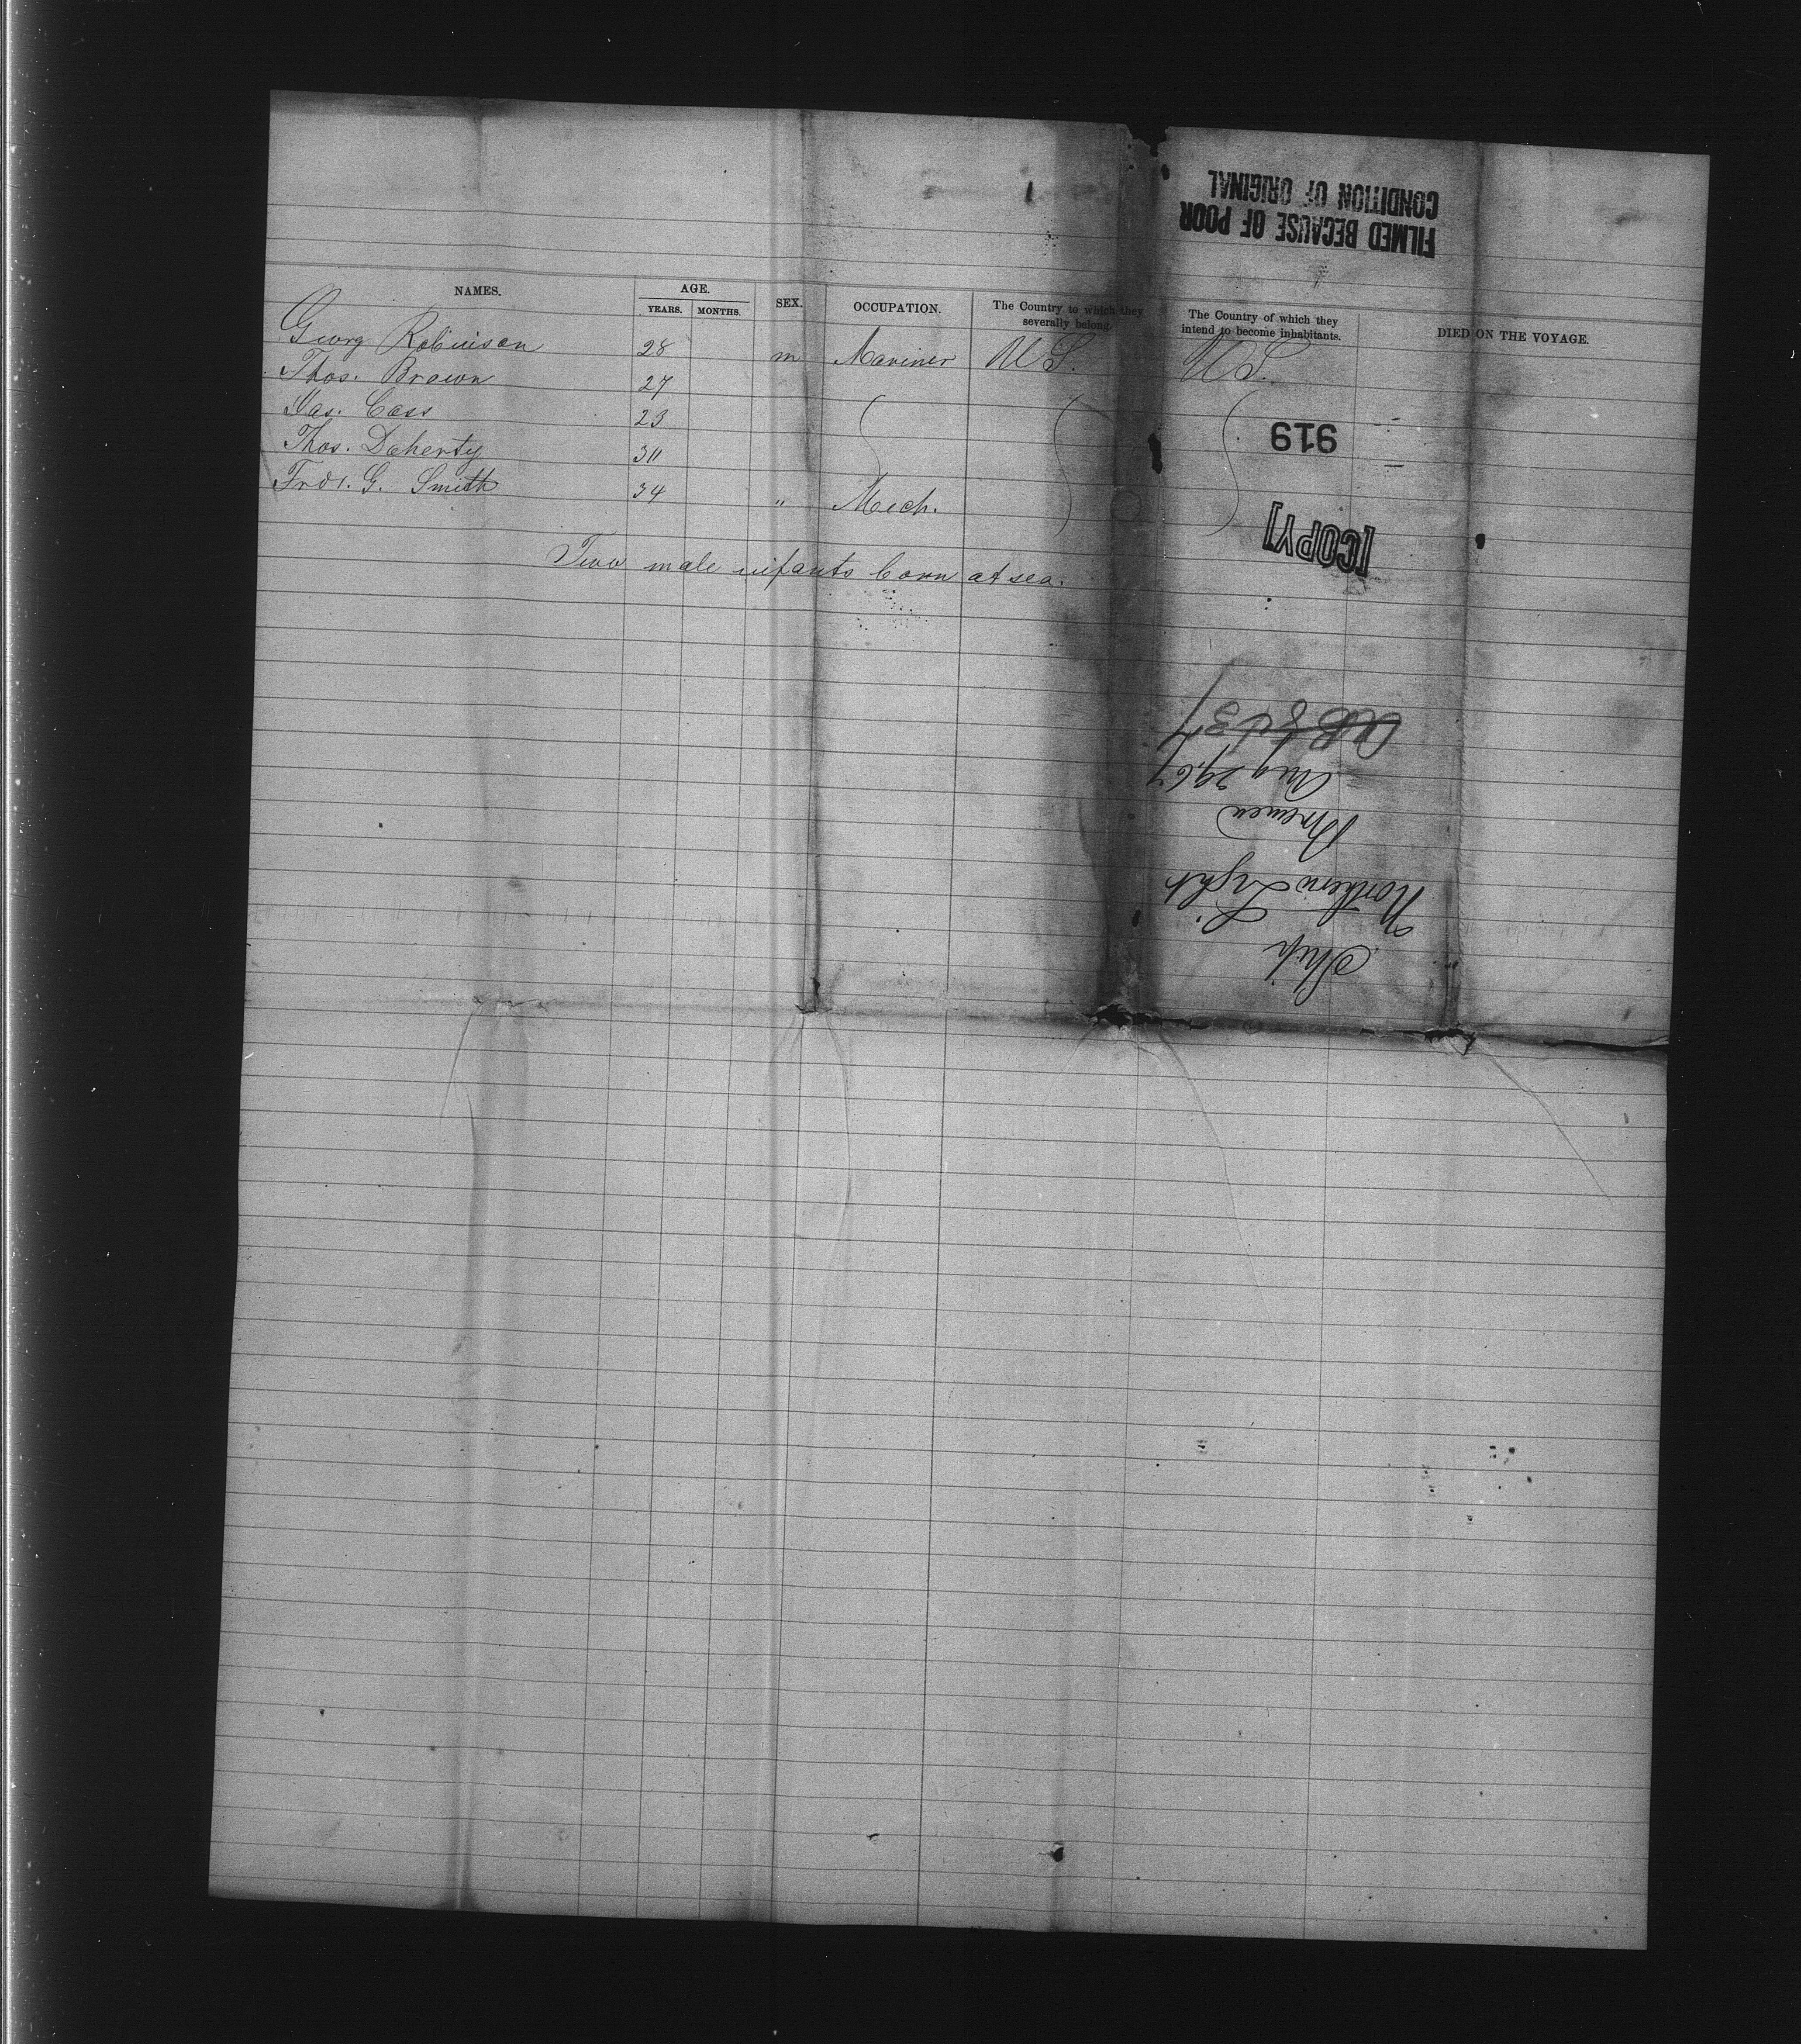 FILMED BECAUSE OF POOR
CONDITION OF ORIGINAL
NAMES. AGE. SEX. OCCUPATION. The Country to which they severally belong. The Country of which they intend to become inhabitants. DIED ON THE VOYAGE.
YEARS. MONTHS.
Georg Robinson 28 m Mariner U.S. U.S.
Thos. Brown 27
Jas. Cass 23
Thos. Doherty 30
Fred. G. Smith 34 " Mech.
Two male infants born at sea.
919
[COPY]
Ship
Northern Light
Bremen
Aug 29, 67